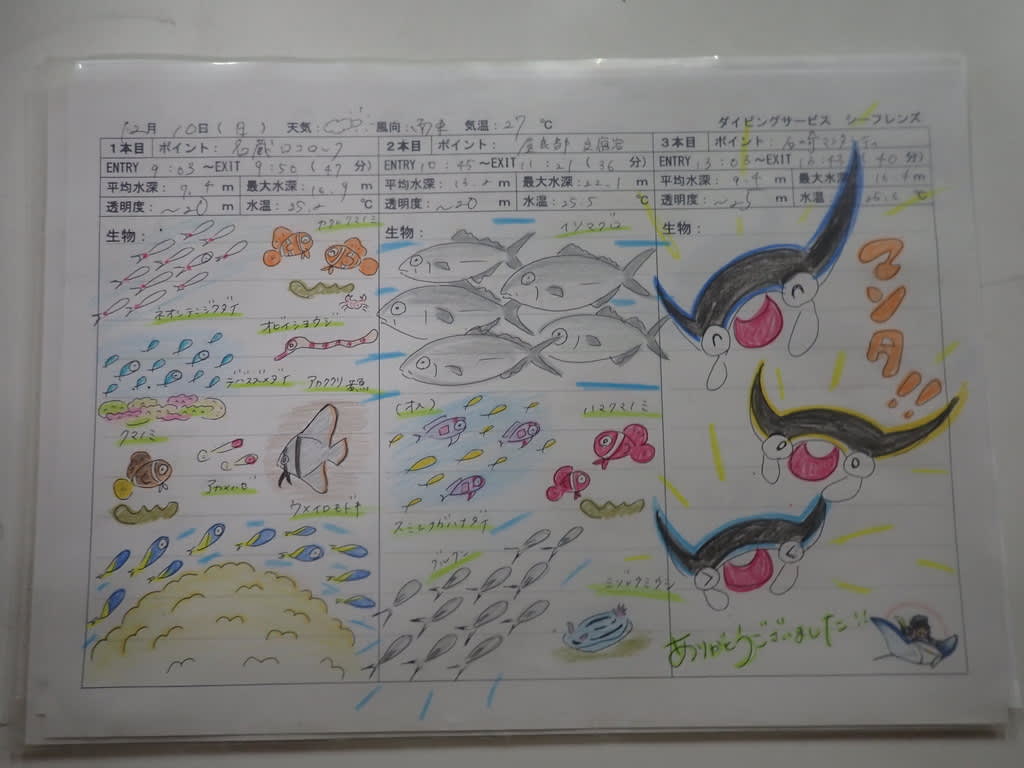 12月 10日(月) 天気: 風向:南東 気温:27 ℃ ダイビングサービス シーフレンズ
1本目 ポイント: 名蔵
ENTRY 9:03 ~EXIT 9:50 (47 分)
平均水深: 9.4 m 最大水深: m
透明度: ~20 m 水温: 25.2 ℃
生物:
カクレクマノミ
ネオンテンジクダイ
オビイシヨウジ
デバスズメダイ
アカククリ
クマノミ
アカメハゼ
ウメイロモドキ
2本目 ポイント: 屋良部
ENTRY 10:45 ~EXIT 11:21 (36 分)
平均水深: m 最大水深: 22.1 m
透明度: ~20 m 水温: 25.5 ℃
生物:
イソマグロ
(オス)
ハマクマノミ
スミレナガハナダイ
グルクン
ミゾレウミウシ
3本目 ポイント:
ENTRY 13:03 ~EXIT 13:43 (40 分)
平均水深: 9.4 m 最大水深: m
透明度: m 水温 ℃
生物:
マンタ!!
ありがとうございました!!